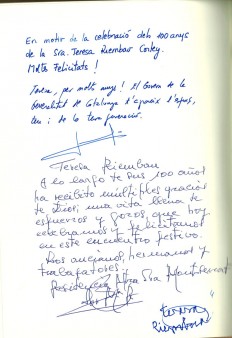 En motiu de la celebració dels 100 anys
de la Sra. Teresa Riembau Corley.
Molta Felicitats!
Teresa, per molts anys! El Govern de la
Generalitat de Catalunya t'agraeix l'esforç,
teu i de la teva generació.
Teresa Riembau
A lo largo de sus 100 años
ha recibido múltiples gracias
de Dios; una vida llena de
esfuerzos y gozos, que hoy
celebramos y felicitamos
en este encuentro festivo.
Los ancianos, hermanas y
trabajadores.
Residencia Ntra Sra Montserrat
teresa
Riembau